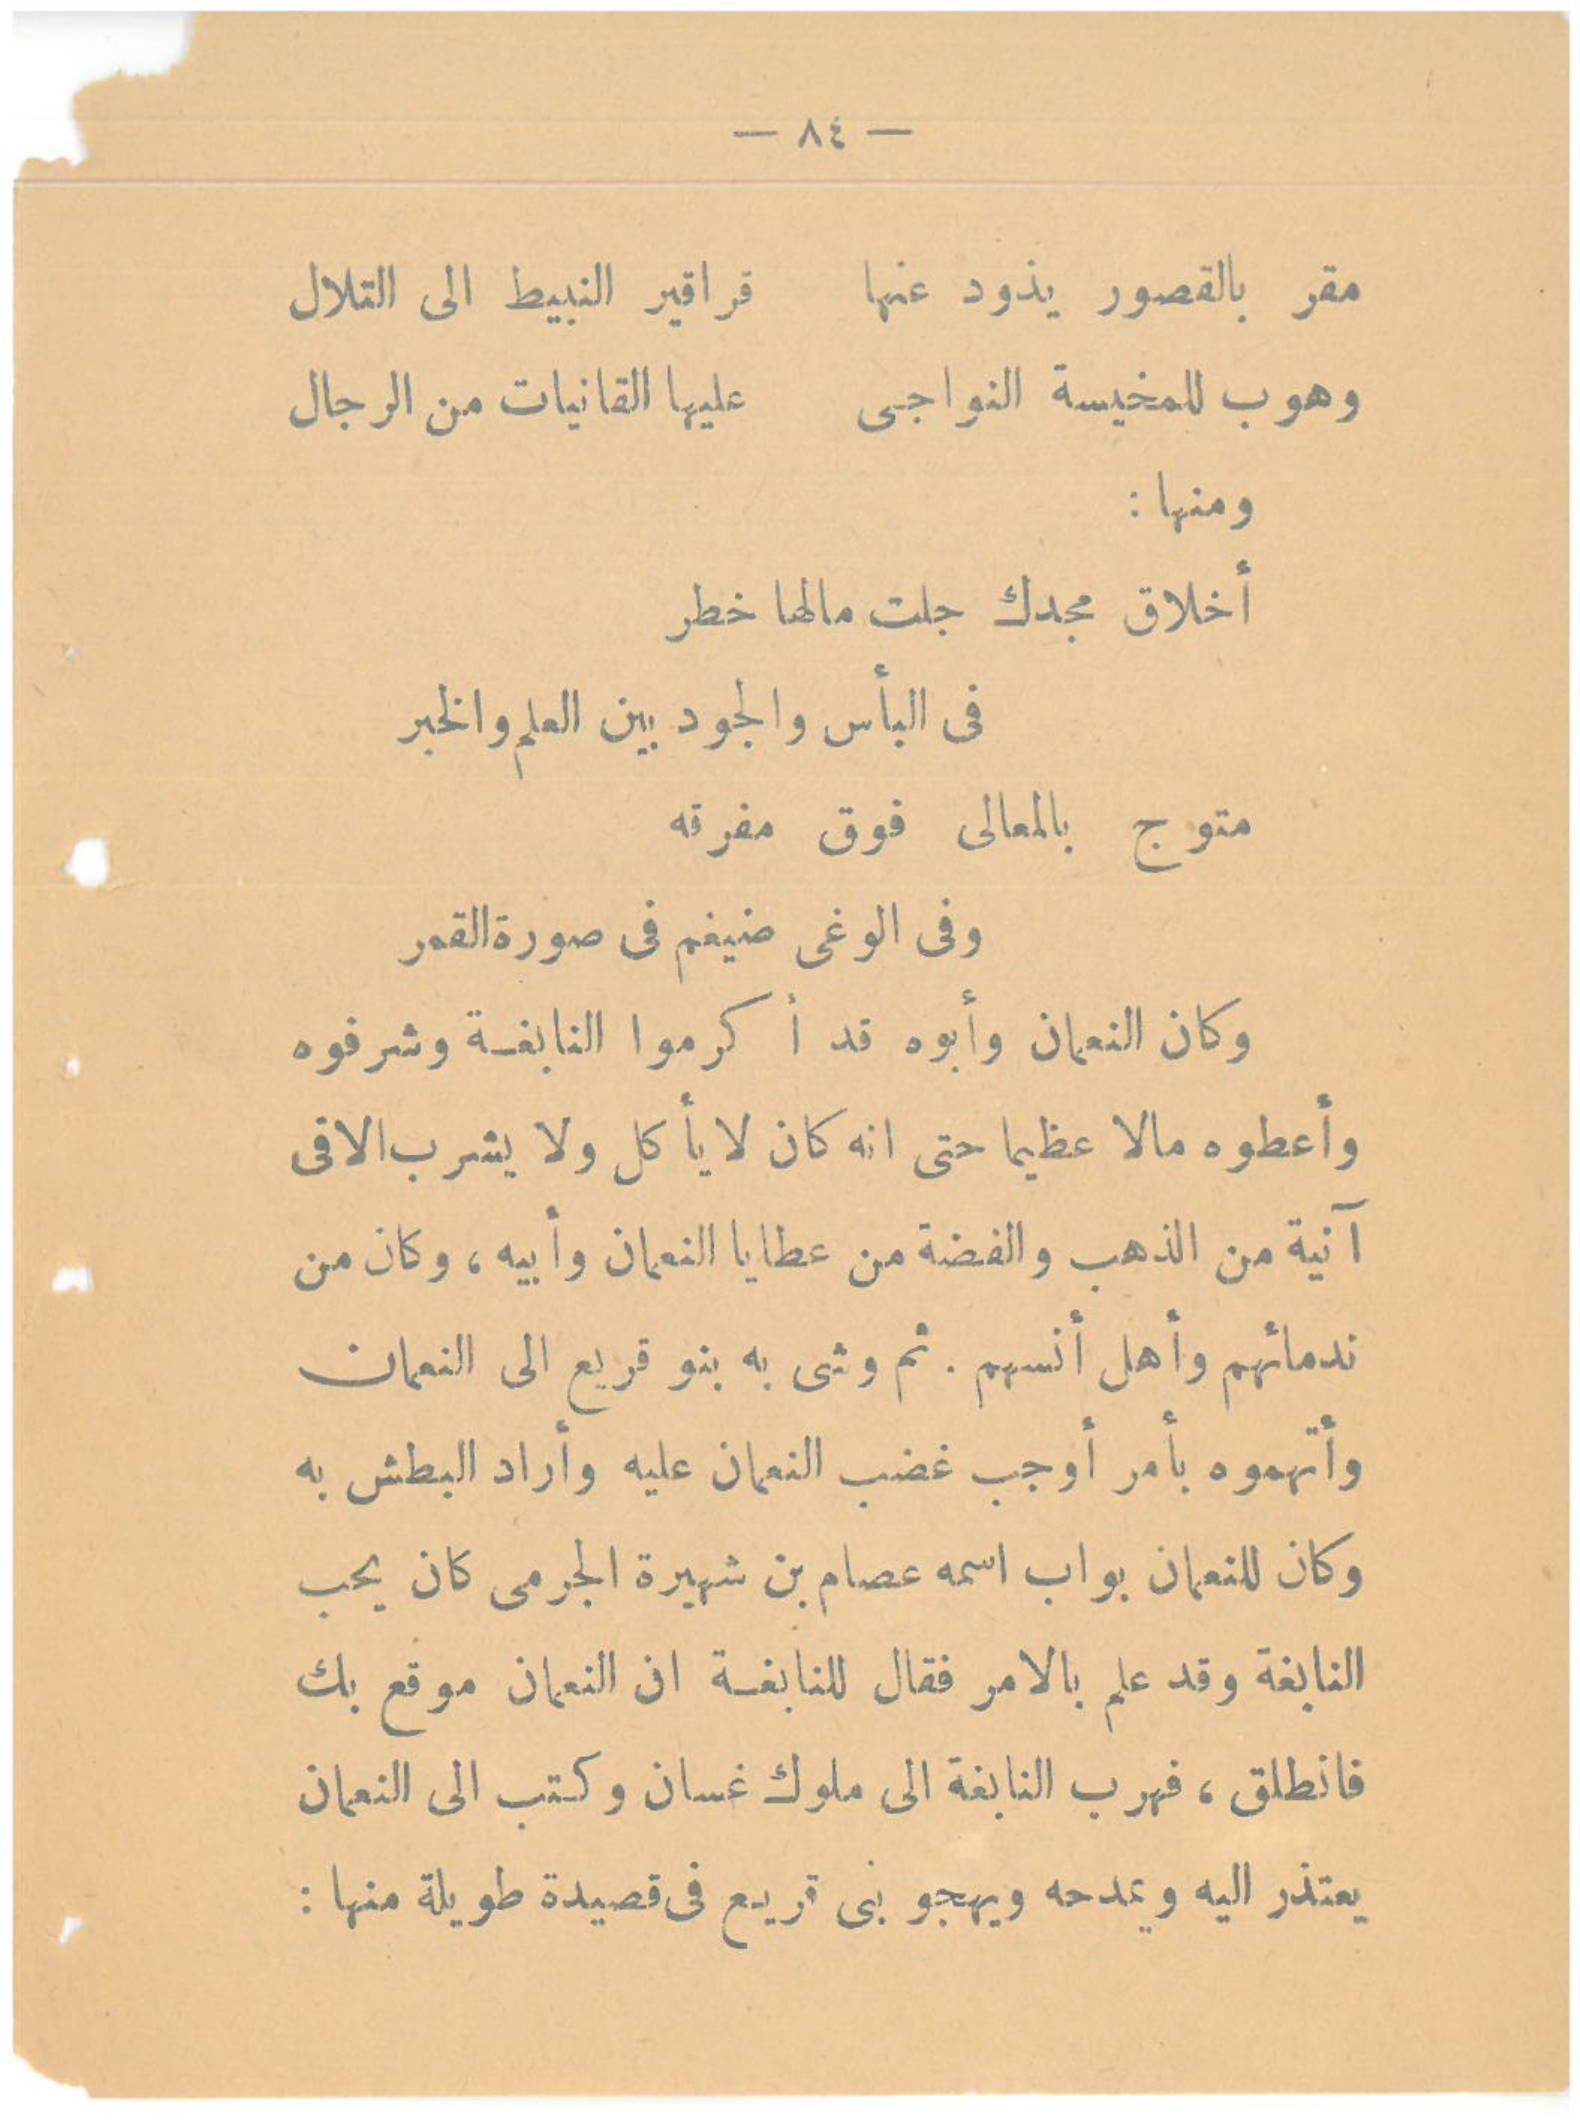 — ٨٤ —
مقر بالقصور يذود عنها قراقير النبيط الى التلال
وهوب للمخيسة النواجى عليها القانيات من الرجال
ومنها :
أخلاق مجدك جلت مالها خطر
فى البأس والجود بين العلم والخبر
متوج بالمعالى فوق مفرقه
وفى الوغى ضيغم فى صورة القمر
وكان النعمان وأبوه قد أكرموا النابغة وشرفوه
وأعطوه مالا عظيما حتى انه كان لا يأكل ولا يشرب الا فى
آنية من الذهب والفضة من عطايا النعمان وأبيه ، وكان من
ندمائهم وأهل أنسهم . ثم وشى به بنو قريع الى النعمان
وأتهموه بأمر أوجب غضب النعمان عليه وأراد البطش به
وكان للنعمان بواب اسمه عصام بن شهيرة الجرمى كان يحب
النابغة وقد علم بالامر فقال للنابغة ان النعمان موقع بك
فانطلق ، فهرب النابغة الى ملوك غسان وكتب الى النعمان
يعتذر اليه ويمدحه ويهجو بنى قريع فى قصيدة طويلة منها :